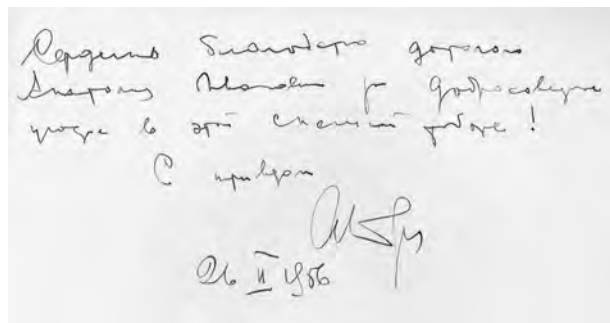 Сердечно благодарю дорогого
Анатолия Ивановича за добросовестное
в этой сложной работе!
С приветом
26 II 1956